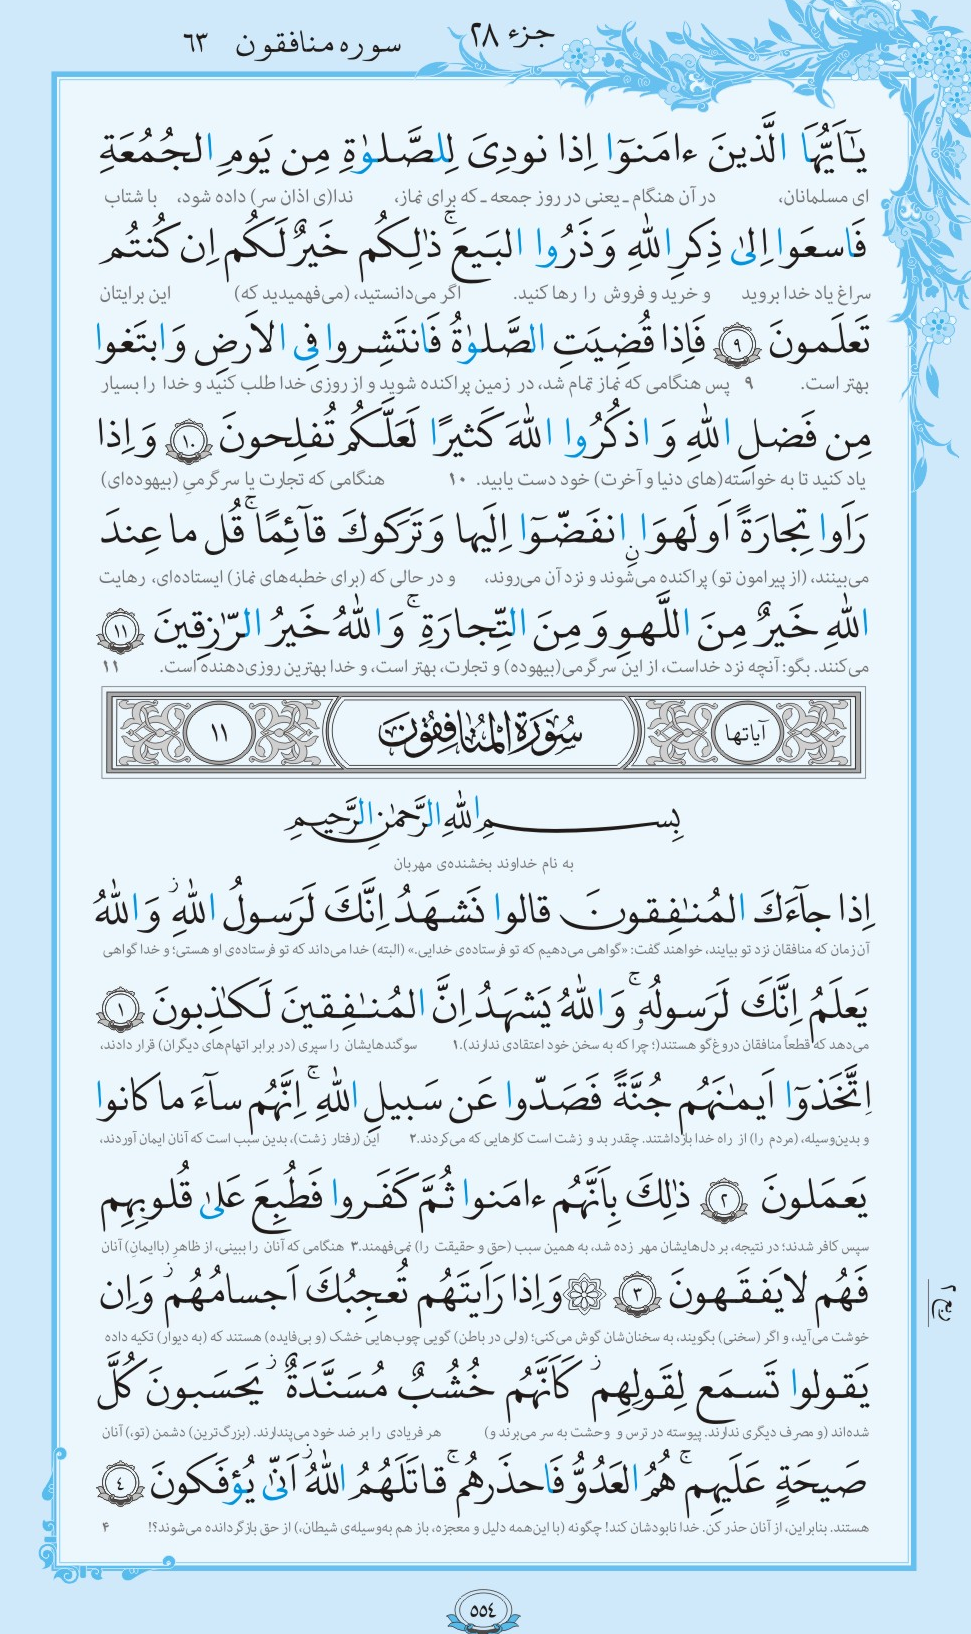 جزء ۲۸
سوره منافقون ۶۳
یـٰٓاَیُّهَا الَّذینَ ءامَنوٓا اِذا نودِیَ لِلصَّلوٰةِ مِن یَومِ الجُمُعَةِ
ای مسلمانان، در آن هنگام ـ یعنی در روز جمعه ـ که برای نماز، ندا(ی اذان سر) داده شود، با شتاب
فَاسعَوا اِلیٰ ذِکرِ اللهِ وَ ذَرُوا البَیعَ ۚ ذٰلِکُم خَیرٌ لَکُم اِن کُنتُم
سراغ یاد خدا بروید و خرید و فروش را رها کنید. اگر می‌دانستید، (می‌فهمیدید که) این برایتان
تَعلَمونَ ﴿٩﴾ فَاِذا قُضِیَتِ الصَّلوٰةُ فَانتَشِروا فِی الاَرضِ وَ ابتَغوا
بهتر است. ۹ پس هنگامی که نماز تمام شد، در زمین پراکنده شوید و از روزی خدا طلب کنید و خدا را بسیار
مِن فَضلِ اللهِ وَ اذکُرُوا اللهَ کَثیرًا لَعَلَّکُم تُفلِحونَ ﴿١٠﴾ وَ اِذا
یاد کنید تا به خواسته(های دنیا و آخرت) خود دست یابید. ۱۰ هنگامی که تجارت یا سرگرمیِ (بیهوده‌ای)
رَاَوا تِجارَةً اَو لَهوَا انفَضّوٓا اِلَیها وَ تَرَکوکَ قآئِمًا ۚ قُل ما عِندَ
می‌بینند، (از پیرامون تو) پراکنده می‌شوند و نزد آن می‌روند، و در حالی که (برای خطبه‌های نماز) ایستاده‌ای، رهایت
اللهِ خَیرٌ مِنَ اللَّهوِ وَ مِنَ التِّجارَةِ ۚ وَ اللهُ خَیرُ الرّٰزِقینَ ﴿١١﴾
می‌کنند. بگو: آنچه نزد خداست، از این سرگرمی(بیهوده) و تجارت، بهتر است، و خدا بهترین روزی‌دهنده است. ۱۱
آیاتها سُورَةُ الْمُنَافِقُونَ ١١
بِسمِ اللهِ الرَّحمٰنِ الرَّحیمِ
به نام خداوند بخشنده‌ی مهربان
اِذا جآءَکَ المُنـٰفِقونَ قالوا نَشهَدُ اِنَّکَ لَرَسولُ اللهِ ۘ وَ اللهُ
آن زمان که منافقان نزد تو بیایند، خواهند گفت: «گواهی می‌دهیم که تو فرستاده‌ی خدایی.» (البته) خدا می‌داند که تو فرستاده‌ی او هستی؛ و خدا گواهی
یَعلَمُ اِنَّکَ لَرَسولُهُ ۚ وَ اللهُ یَشهَدُ اِنَّ المُنـٰفِقینَ لَکـٰذِبونَ ﴿١﴾
می‌دهد که قطعاً منافقان دروغ‌گو هستند(؛ چرا که به سخن خود اعتقادی ندارند).۱ سوگندهایشان را سپری (در برابر اتهام‌های دیگران) قرار دادند،
اِتَّخَذوٓا اَیمـٰنَهُم جُنَّةً فَصَدّوا عَن سَبیلِ اللهِ ۚ اِنَّهُم سآءَ ما کانوا
و بدین‌وسیله، (مردم را) از راه خدا بازداشتند. چقدر بد و زشت است کارهایی که می‌کردند.۲ این (رفتار زشت)، بدین سبب است که آنان ایمان آوردند،
یَعمَلونَ ﴿٢﴾ ذٰلِکَ بِاَنَّهُم ءامَنوا ثُمَّ کَفَروا فَطُبِعَ عَلیٰ قُلوبِهِم
سپس کافر شدند؛ در نتیجه، بر دل‌هایشان مهر زده شد، به همین سبب (حق و حقیقت را) نمی‌فهمند.۳ هنگامی که آنان را ببینی، از ظاهرِ (باایمانِ) آنان
فَهُم لا یَفقَهونَ ﴿٣﴾ ۞ وَ اِذا رَاَیتَهُم تُعجِبُکَ اَجسامُهُم ۖ وَ اِن
خوشت می‌آید، و اگر (سخنی) بگویند، به سخنان‌شان گوش می‌کنی؛ (ولی در باطن) گویی چوب‌هایی خشک (و بی‌فایده) هستند که (به دیوار) تکیه داده
ربع ۲
یَقولوا تَسمَع لِقَولِهِم ۖ کَاَنَّهُم خُشُبٌ مُسَنَّدَةٌ ۖ یَحسَبونَ کُلَّ
شده‌اند (و مصرف دیگری ندارند. پیوسته در ترس و وحشت به سر می‌برند و) هر فریادی را بر ضد خود می‌پندارند. (بزرگ‌ترین) دشمن (تو،) آنان
صَیحَةٍ عَلَیهِم ۚ هُمُ العَدُوُّ فَاحذَرهُم ۚ قاتَلَهُمُ اللهُ ۖ اَنّیٰ یُؤفَکونَ ﴿٤﴾
هستند. بنابراین، از آنان حذر کن. خدا نابودشان کند! چگونه (با این‌همه دلیل و معجزه، باز هم به‌وسیله‌ی شیطان،) از حق بازگردانده می‌شوند؟! ۴
٥٥٤